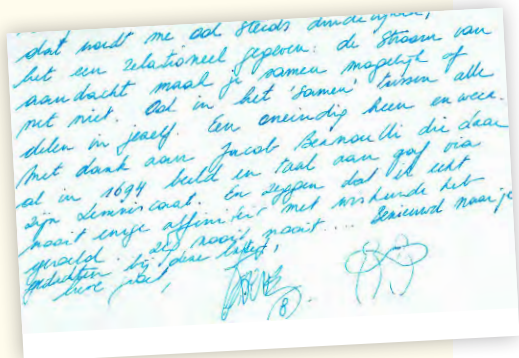 dat wordt me ook steeds duidelijker,
het een relationeel gegeven: de stroom van
aandacht maak je samen mogelijk of
net niet. Ook in het 'samen' tussen alle
delen in jezelf. Een oneindig heen en weer.
Met dank aan Jacob Bernoulli die daar
al in 1694 beeld en taal aan gaf via
zijn Lemniscaat. En zeggen dat ik echt
nooit enige affiniteit met wiskunde heb
gevoeld. Zeg nooit nooit... Benieuwd naar je
gedachten bij deze laatste,
lieve